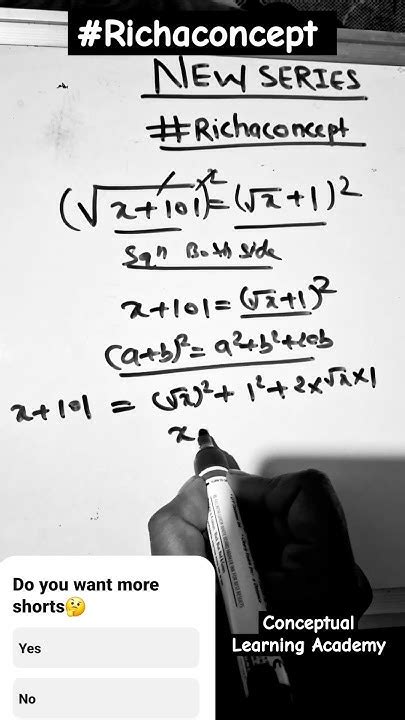 #Richaconcept
NEW SERIES
#Richaconcept
(√x+101)²=(√x+1)²
Sqⁿ Both side
x+101=(√x+1)²
(a+b)²=a²+b²+2ab
x+101 = (√x)²+1²+2×√x×1
x
Do you want more
shorts🤔
Yes
No
Conceptual
Learning Academy